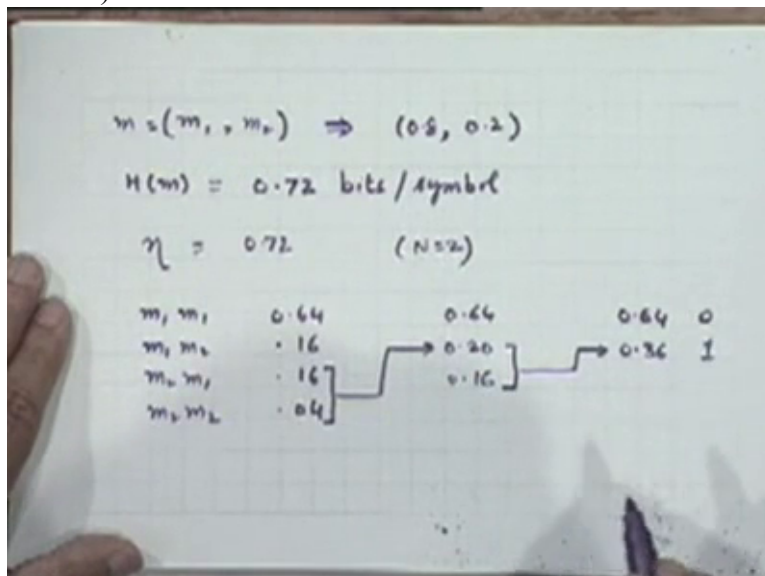 m = (m₁, m₂) ⇒ (0.8, 0.2)
H(m) = 0.72 bits/symbol
η = 0.72 (N=2)
m₁ m₁ 0.64 0.64 0.64 0
m₁ m₂ .16 0.20 0.36 1
m₂ m₁ .16 0.16
m₂ m₂ .04